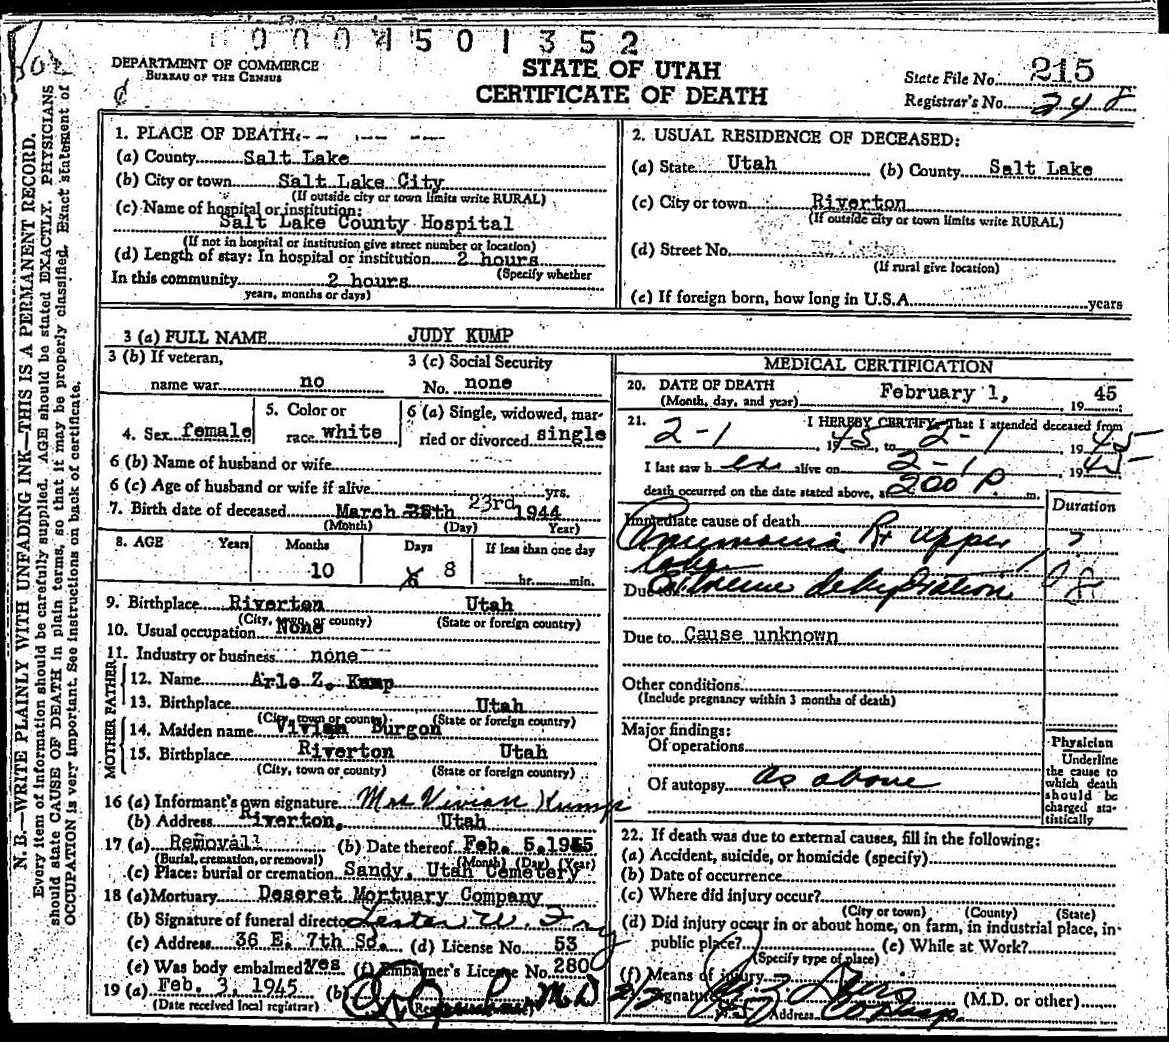 0004501352
DEPARTMENT OF COMMERCE
BUREAU OF THE CENSUS
STATE OF UTAH
CERTIFICATE OF DEATH
State File No. 215
Registrar's No. 248
N. B.—WRITE PLAINLY WITH UNFADING INK—THIS IS A PERMANENT RECORD.
Every item of information should be carefully supplied. AGE should be stated EXACTLY. PHYSICIANS
should state CAUSE OF DEATH in plain terms, so that it may be properly classified. Exact statement of
OCCUPATION is very important. See instructions on back of certificate.
1. PLACE OF DEATH:
(a) County Salt Lake
(b) City or town Salt Lake City
(If outside city or town limits write RURAL)
(c) Name of hospital or institution:
Salt Lake County Hospital
(If not in hospital or institution give street number or location)
(d) Length of stay: In hospital or institution 2 hours
(Specify whether
In this community 2 hours
years, months or days)
2. USUAL RESIDENCE OF DECEASED:
(a) State Utah (b) County Salt Lake
(c) City or town Riverton
(If outside city or town limits write RURAL)
(d) Street No.
(If rural give location)
(e) If foreign born, how long in U.S.A. years
3 (a) FULL NAME JUDY KUMP
3 (b) If veteran,
name war no
3 (c) Social Security
No. none
4. Sex female
5. Color or
race white
6 (a) Single, widowed, mar-
ried or divorced single
6 (b) Name of husband or wife
6 (c) Age of husband or wife if alive yrs.
7. Birth date of deceased March 23rd 1944
(Month) (Day) Year)
8. AGE Years Months Days If less than one day
10 8 hr. min.
9. Birthplace Riverton Utah
(City, town or county) (State or foreign country)
10. Usual occupation None
11. Industry or business none
FATHER
12. Name Arlo Z. Kump
13. Birthplace Utah
(City, town or county) (State or foreign country)
MOTHER
14. Maiden name Vivian Burgon
15. Birthplace Riverton Utah
(City, town or county) (State or foreign country)
16 (a) Informant's own signature Mrs Vivian Kump
(b) Address Riverton, Utah
17 (a) Removal (b) Date thereof Feb. 5, 1945
(Burial, cremation, or removal) (Month) (Day) (Year)
(c) Place: burial or cremation Sandy, Utah Cemetery
18 (a) Mortuary Deseret Mortuary Company
(b) Signature of funeral director Lester W.
(c) Address 36 E. 7th So. (d) License No. 53
(e) Was body embalmed? yes (f) Embalmer's License No. 280
19 (a) Feb. 3, 1945 (b) M D
(Date received local registrar)
MEDICAL CERTIFICATION
20. DATE OF DEATH
(Month, day, and year) February 1, 19 45
21. I HEREBY CERTIFY, That I attended deceased from
2-1, 1945, to 2-1, 1945
I last saw her alive on 2-1, 1945
death occurred on the date stated above, at 200 P m.
Duration
Immediate cause of death
Pneumonia Rt upper ?
lobe
Due to Extreme dehydration
Due to Cause unknown
Other conditions
(Include pregnancy within 3 months of death)
Major findings:
Of operations
Of autopsy as above
Physician
Underline
the cause to
which death
should be
charged sta-
tistically
22. If death was due to external causes, fill in the following:
(a) Accident, suicide, or homicide (specify)
(b) Date of occurrence
(c) Where did injury occur?
(City or town) (County) (State)
(d) Did injury occur in or about home, on farm, in industrial place, in
public place? (e) While at Work?
(Specify type of place)
(f) Means of injury
Signature (M.D. or other)
Address Co Hosp.